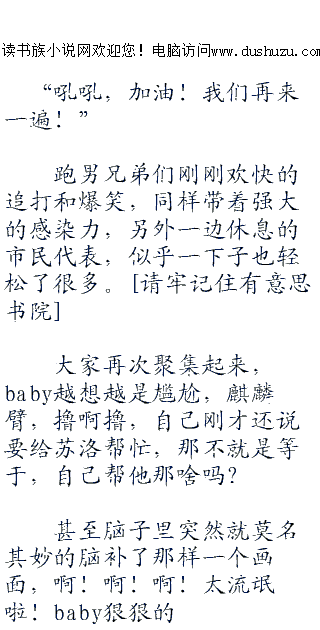 读书族小说网欢迎您！电脑访问www.dushuzu.com
“吼吼，加油！我们再来
一遍！”
跑男兄弟们刚刚欢快的
追打和爆笑，同样带着强大
的感染力，另外一边休息的
市民代表，似乎一下子也轻
松了很多。[请牢记住有意思
书院]
大家再次聚集起来，
baby越想越是尴尬，麒麟
臂，撸啊撸，自己刚才还说
要给苏洛帮忙，那不就是等
于，自己帮他那啥吗？
甚至脑子里突然就莫名
其妙的脑补了那样一个画
面，啊！啊！啊！太流氓
啦！baby狠狠的